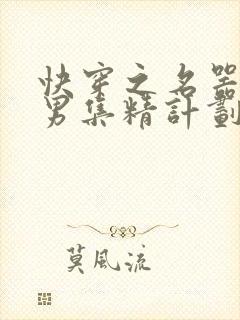 快穿之名器
男集精計劃
莫風流